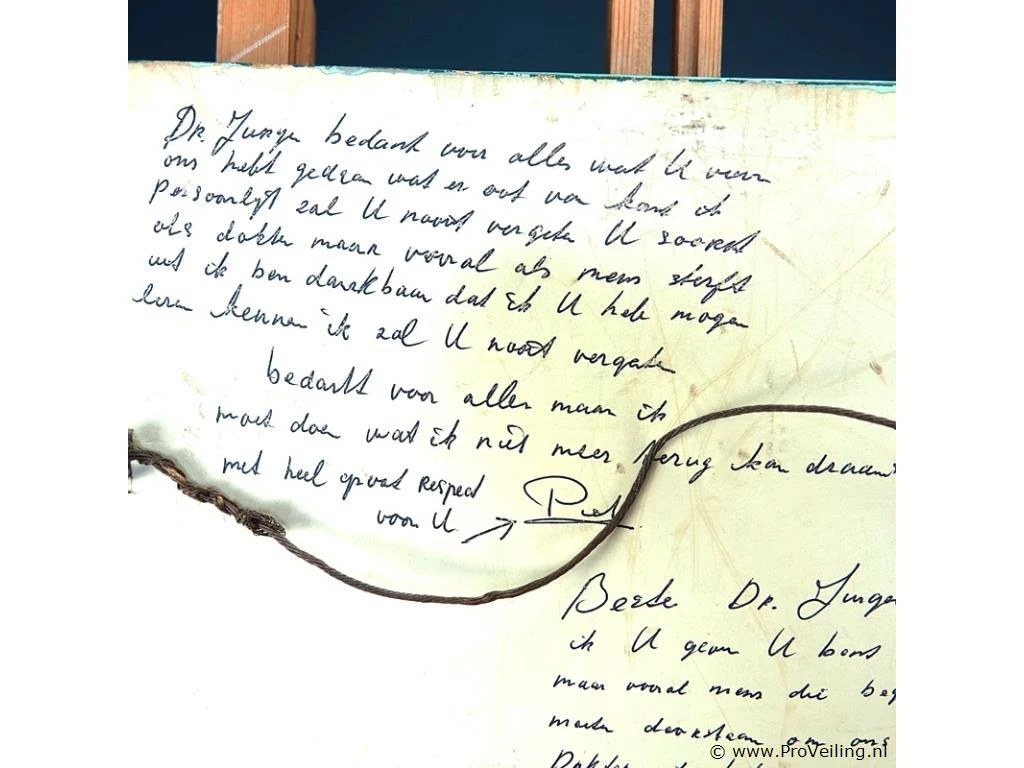 Dr. Jurgen bedankt voor alles wat U voor
ons hebt gedaan wat er ook van komt ik
persoonlijk zal U nooit vergeten U
als dokter maar vooral als mens sterft
uit ik ben dankbaar dat ik U heb mogen
leren kennen ik zal U nooit vergeten
bedankt voor alles maar ik
moet doen wat ik niet meer terug kan draaien
met heel groot Respect
voor U
Beste Dr. Jurgen
ik U geen U bent
maar vooral mens die
moeten doorstaan om ons
© www.ProVeiling.nl